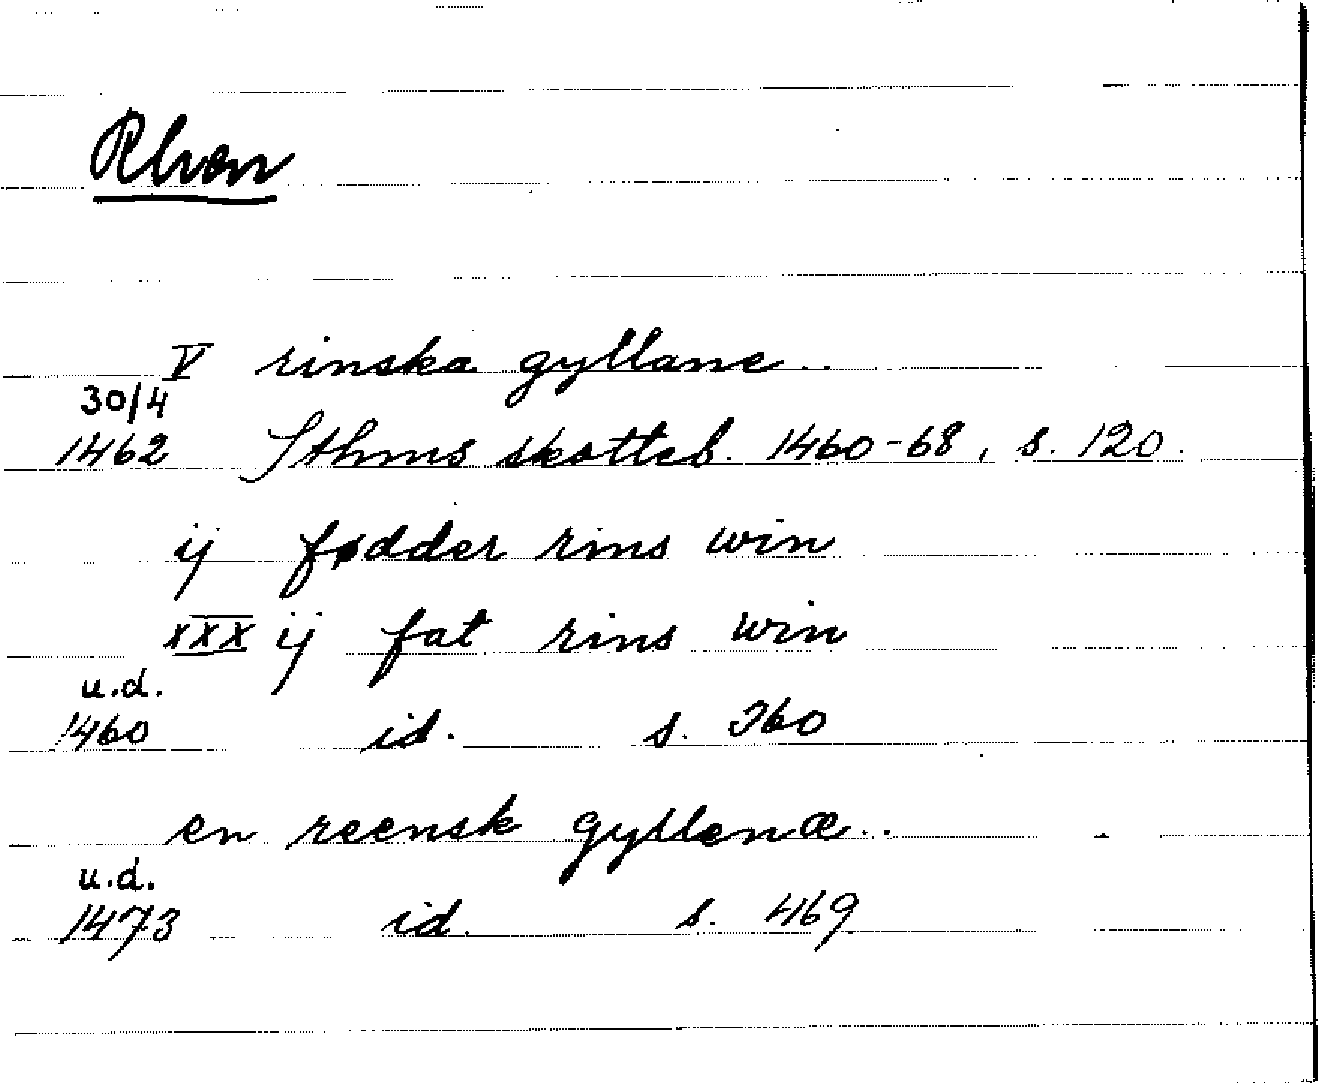 Rhen
V rinska gyllane..
30/4
1462 Sthms skotteb. 1460-68, s. 120.
ij fødder rins win
XXX ij fat rins win
u.d.
1460 id. s. 360
en reensk gyllenæ..
u.d.
1473 id. s. 469